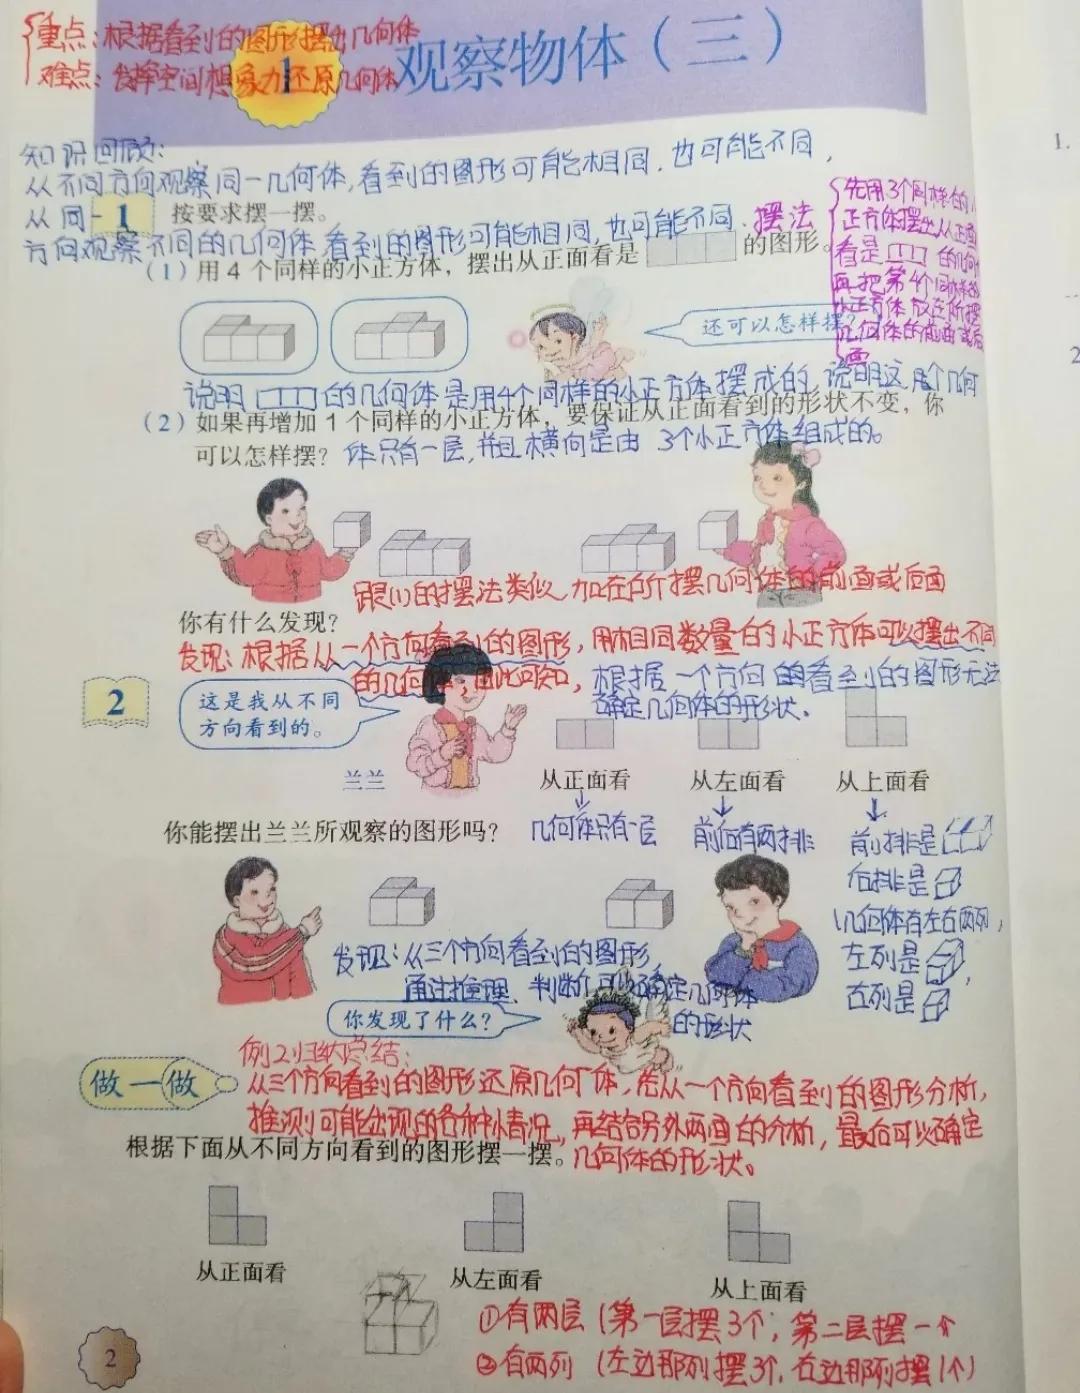 重点：根据看到的图形摆出几何体
难点：发挥空间想象力还原几何体
1
观察物体（三）
知识回顾：
从不同方向观察同一几何体，看到的图形可能相同，也可能不同，
从同一
方向观察不同的几何体，看到的图形可能相同，也可能不同。
1 按要求摆一摆。
摆法
先用3个同样的小
正方体摆出从正面
看是 的几何
再把第4个同样的
小正方体放在所摆
几何体的前面或后
面
（1）用 4 个同样的小正方体，摆出从正面看是 的图形。
还可以怎样摆？
说明 的几何体是用4个同样的小正方体摆成的，说明这个几何
（2）如果再增加 1 个同样的小正方体，要保证从正面看到的形状不变，你
可以怎样摆？
体只有一层，并且横向是由 3个小正方体组成的。
跟(1)的摆法类似，加在所摆几何体的前面或后面
你有什么发现？
发现：根据从一个方向看到的图形，用相同数量的小正方体可以摆出不同
的几何体，由此可知，根据一个方向 看到的图形无法
确定几何体的形状。
2
这是我从不同
方向看到的。
兰兰
从正面看
从左面看
从上面看
几何体只有一层
前后有两排
前排是
后排是
几何体有左右两列，
左列是 ，
右列是
你能摆出兰兰所观察的图形吗？
发现：从三个方向看到的图形，
通过推理、判断，可以确定几何体
的形状
你发现了什么？
例2归纳总结：
做一做
从三个方向看到的图形还原几何体，先从一个方向看到的图形分析，
推测可能出现的各种情况，再结合另外两面的分析，最后可以确定
几何体的形状。
根据下面从不同方向看到的图形摆一摆。
从正面看
从左面看
从上面看
①有两层（第一层摆3个；第二层摆一个
②有两列（左边那列摆3个，右边那列摆1个）
2
1.
2